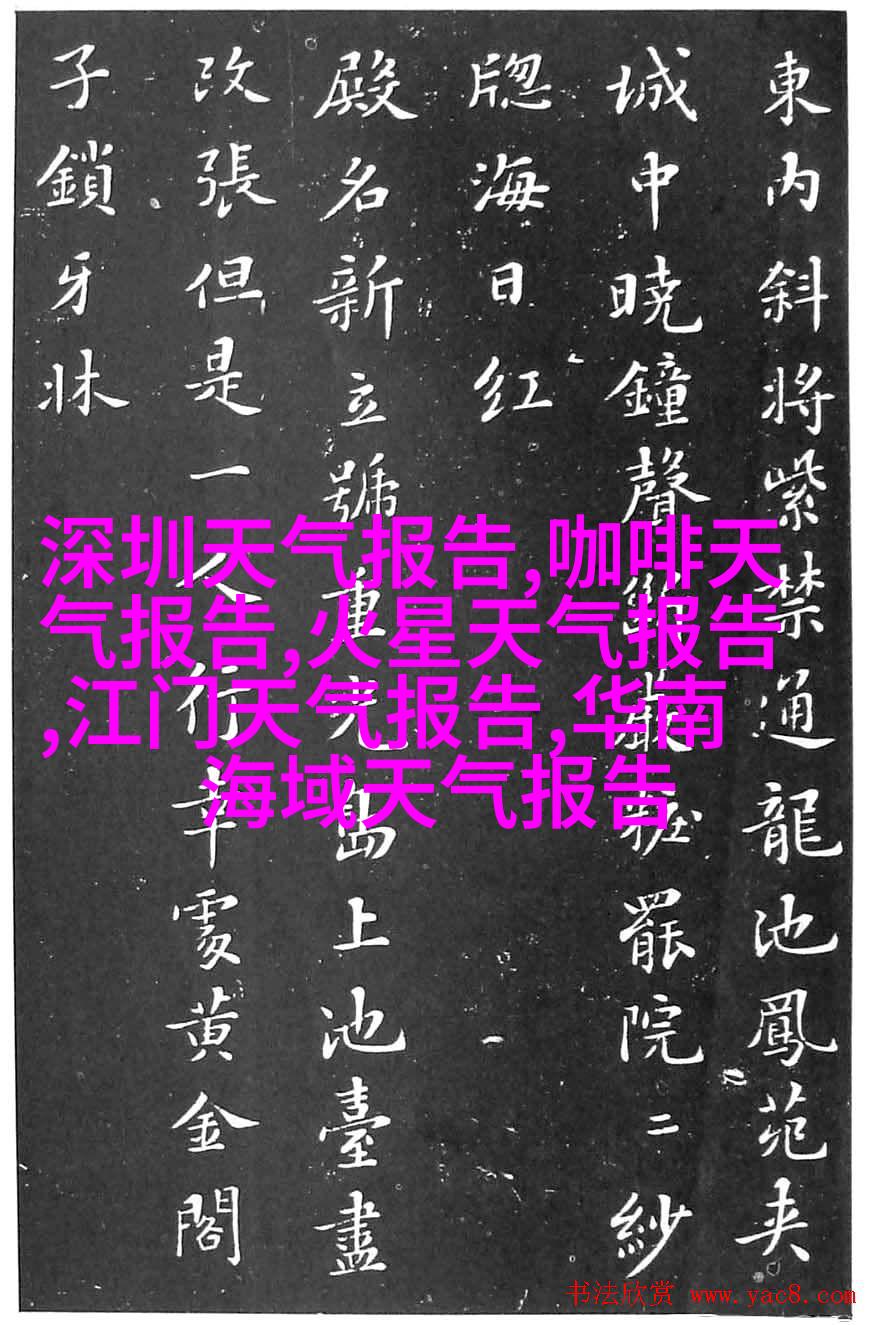 東内斜将紫禁通龍池鳳苑夹
城中暁鐘聲嚴粧罷院二紗
牕海日红
殿名新立號重光島上池臺盡
改張但是一人行幸處黄金閣
子鎖牙牀
深圳天气报告,咖啡天
气报告,火星天气报告
,江门天气报告,华南
海域天气报告
书法欣赏 www.yac8.com